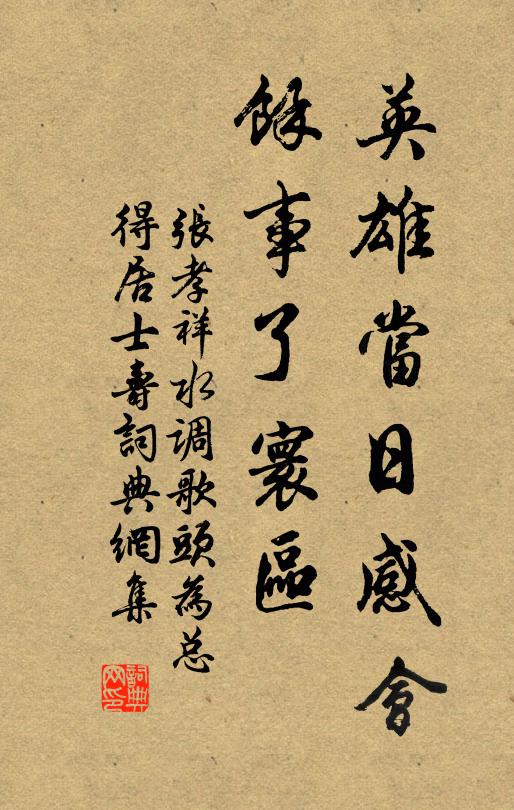 英雄當日感會
餘事了寰區
張孝祥水调歌頭為总
得居士壽詞典網集
詞典
网印